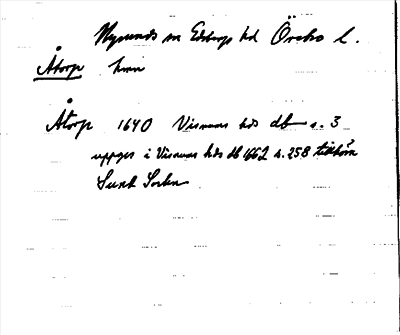 Nysunds sn Edsbergs hd Örebro l.
Åtorp hmn
Åtorp 1640 Visnums hds db s. 3
uppges i Visnums hds db 1662 s. 258 tillhöra
Sunds Socken